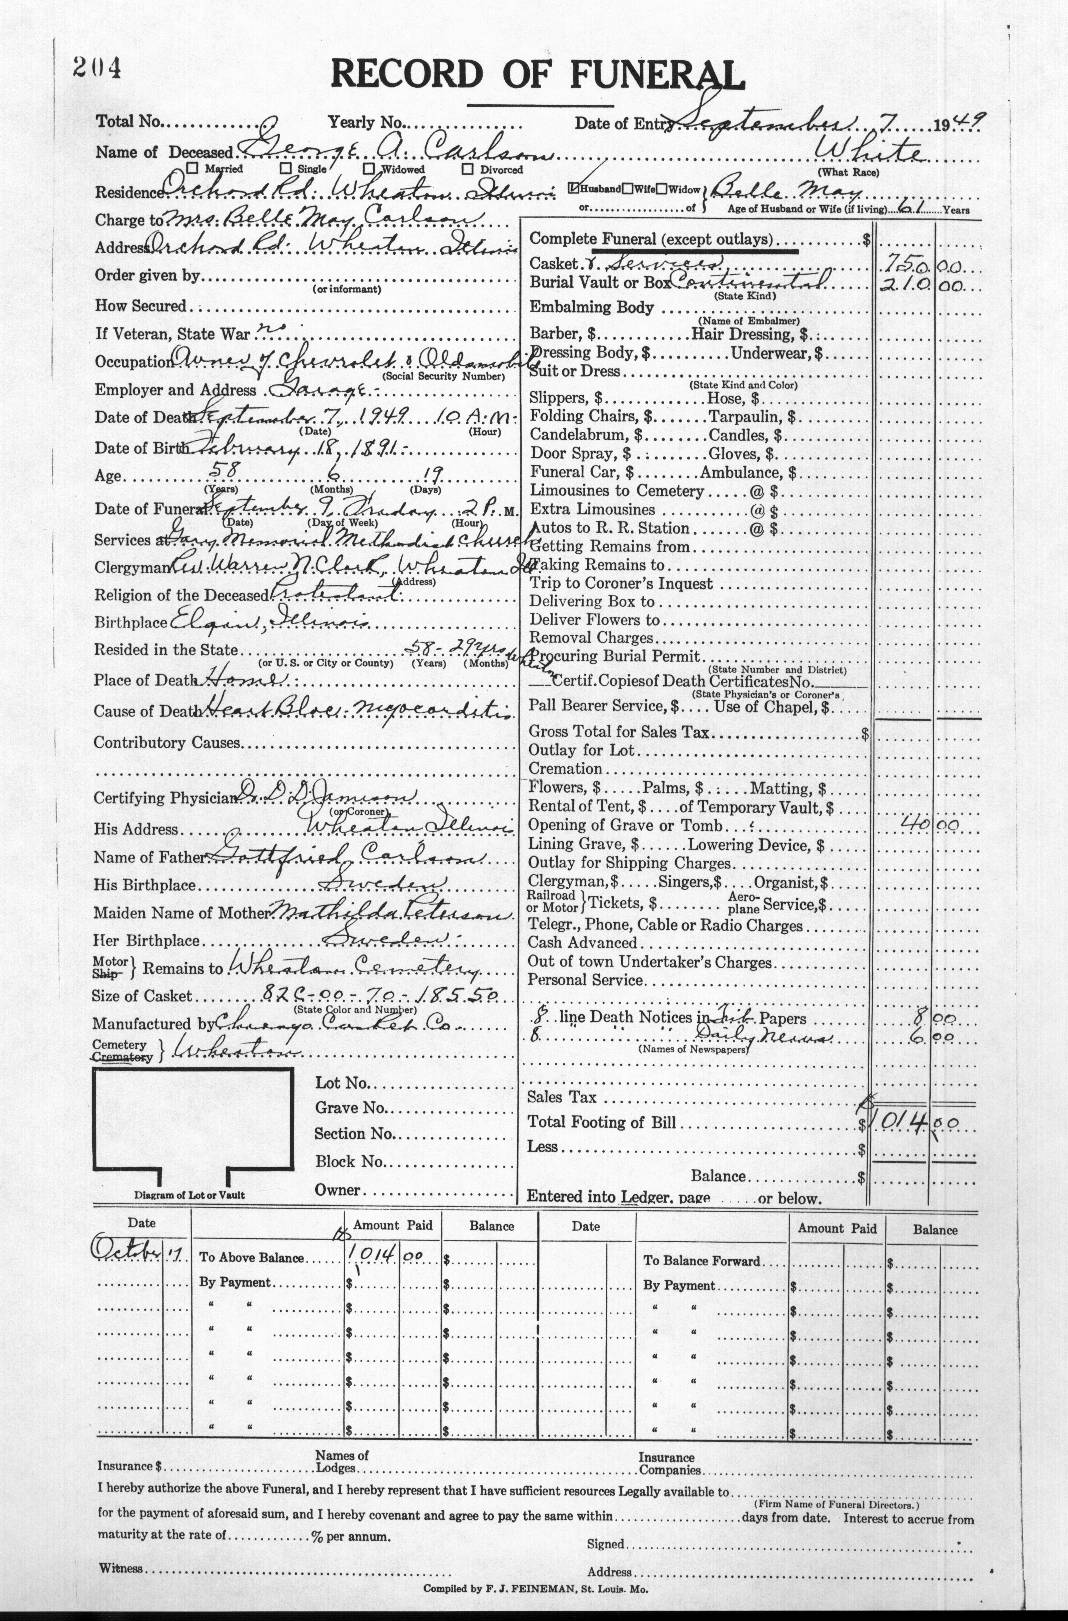 204
RECORD OF FUNERAL
Total No. Yearly No. Date of Entry September 7 1949
Name of Deceased George A. Carlson White
Married Single Widowed Divorced (What Race)
Residence Orchard Rd. Wheaton Illinois Husband Wife Widow } Belle May
or of Age of Husband or Wife (if living) 61 Years
Charge to Mrs. Belle May Carlson
Address Orchard Rd. Wheaton, Illinois
Order given by
(or informant)
How Secured
If Veteran, State War no
Occupation Owner of Chevrolet & Oldsmobile
(Social Security Number)
Employer and Address Garage
Date of Death September 7, 1949 10 A.M.
(Date) (Hour)
Date of Birth February 18, 1891
Age 58 6 19
(Years) (Months) (Days)
Date of Funeral September 9, Friday 2 P. M.
(Date) (Day of Week) (Hour)
Services at Gary Memorial Methodist Church
Clergyman Rev. Warren N. Clark, Wheaton Ill
(Address)
Religion of the Deceased Protestant
Birthplace Elgin, Illinois
Resided in the State 58 - 29 yrs Wheaton
(or U. S. or City or County) (Years) (Months)
Place of Death Home
Cause of Death Heart Bloc - myocarditis
Contributory Causes
Certifying Physician Dr. D. D. Jamison
(or Coroner)
His Address Wheaton Illinois
Name of Father Gottfried Carlson
His Birthplace Sweden
Maiden Name of Mother Mathilda Peterson
Her Birthplace Sweden
Motor Ship } Remains to Wheaton Cemetery
Size of Casket 82C-00-70-185.50
(State Color and Number)
Manufactured by Chicago Casket Co.
Cemetery Crematory } Wheaton
Lot No.
Grave No.
Section No.
Block No.
Owner
Diagram of Lot or Vault
Complete Funeral (except outlays) $
Casket & Services 750 00
Burial Vault or Box Continental 210 00
(State Kind)
Embalming Body
(Name of Embalmer)
Barber, $ Hair Dressing, $
Dressing Body, $ Underwear, $
Suit or Dress
(State Kind and Color)
Slippers, $ Hose, $
Folding Chairs, $ Tarpaulin, $
Candelabrum, $ Candles, $
Door Spray, $ Gloves, $
Funeral Car, $ Ambulance, $
Limousines to Cemetery @ $
Extra Limousines @ $
Autos to R. R. Station @ $
Getting Remains from
Taking Remains to
Trip to Coroner's Inquest
Delivering Box to
Deliver Flowers to
Removal Charges
Procuring Burial Permit
(State Number and District)
Certif. Copies of Death Certificates No.
(State Physician's or Coroner's
Pall Bearer Service, $ Use of Chapel, $
Gross Total for Sales Tax $
Outlay for Lot
Cremation
Flowers, $ Palms, $ Matting, $
Rental of Tent, $ of Temporary Vault, $
Opening of Grave or Tomb 40 00
Lining Grave, $ Lowering Device, $
Outlay for Shipping Charges
Clergyman, $ Singers, $ Organist, $
Railroad or Motor } Tickets, $ Aeroplane Service, $
Telegr., Phone, Cable or Radio Charges
Cash Advanced
Out of town Undertaker's Charges
Personal Service
8 line Death Notices in Trib. Papers 8 00
8 " " " Daily News 6 00
(Names of Newspapers)
Sales Tax
Total Footing of Bill $ 1014 00
Less $
Balance $
Entered into Ledger, page or below.
Date Amount Paid Balance Date Amount Paid Balance
October 7 To Above Balance $ 1014 00 $ To Balance Forward $
By Payment $ $ By Payment $ $
" " $ $ " " $ $
" " $ $ " " $ $
" " $ $ " " $ $
" " $ $ " " $ $
" " $ $ " " $ $
" " $ $ " " $ $
Insurance $ Names of Lodges Insurance Companies
I hereby authorize the above Funeral, and I hereby represent that I have sufficient resources Legally available to
(Firm Name of Funeral Directors.)
for the payment of aforesaid sum, and I hereby covenant and agree to pay the same within days from date. Interest to accrue from
maturity at the rate of % per annum.
Signed
Witness Address
Compiled by F. J. FEINEMAN, St. Louis. Mo.